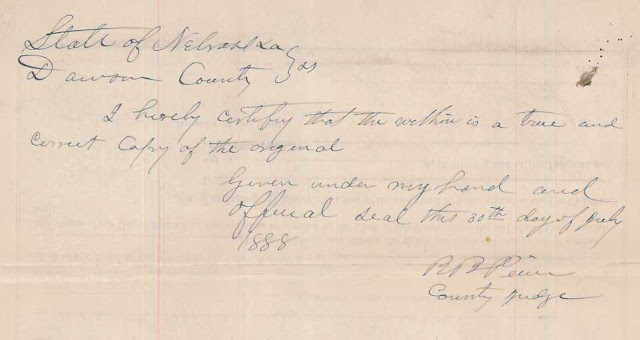 State of Nebraska } ss
Dawson County
I hereby certify that the within is a true and
correct Copy of the original
Given under my hand and
official seal this 30th day of July
1888
R B Pierce
County Judge